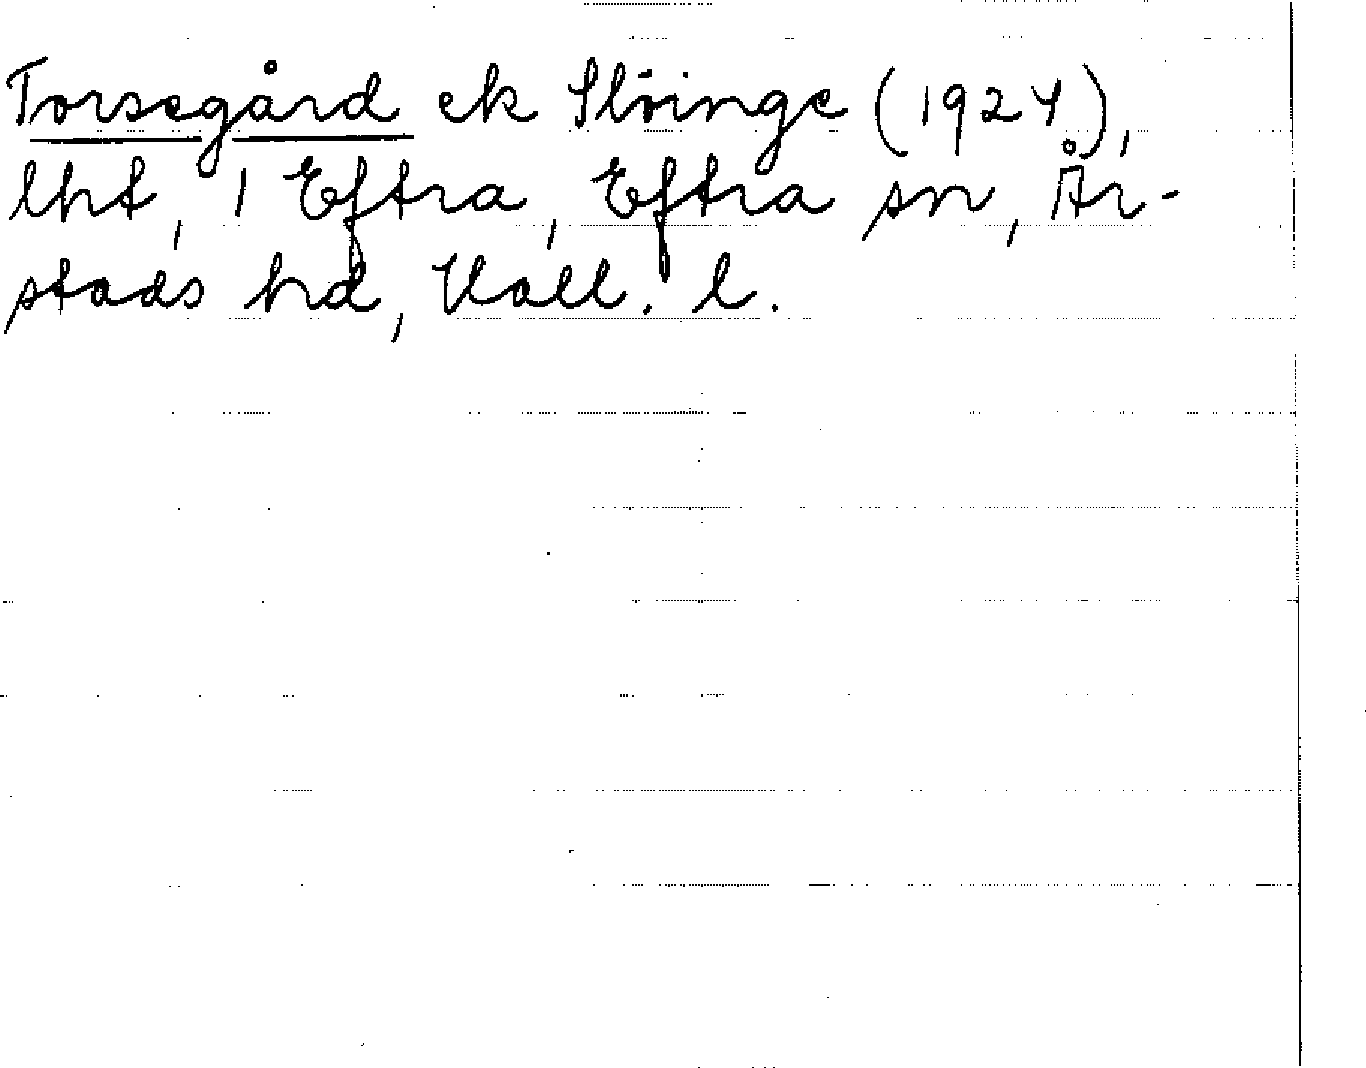 Torsegård ek Slöinge (1924),
lht, 1 Eftra, Eftra sn, År-
stads hd, Hall. l.